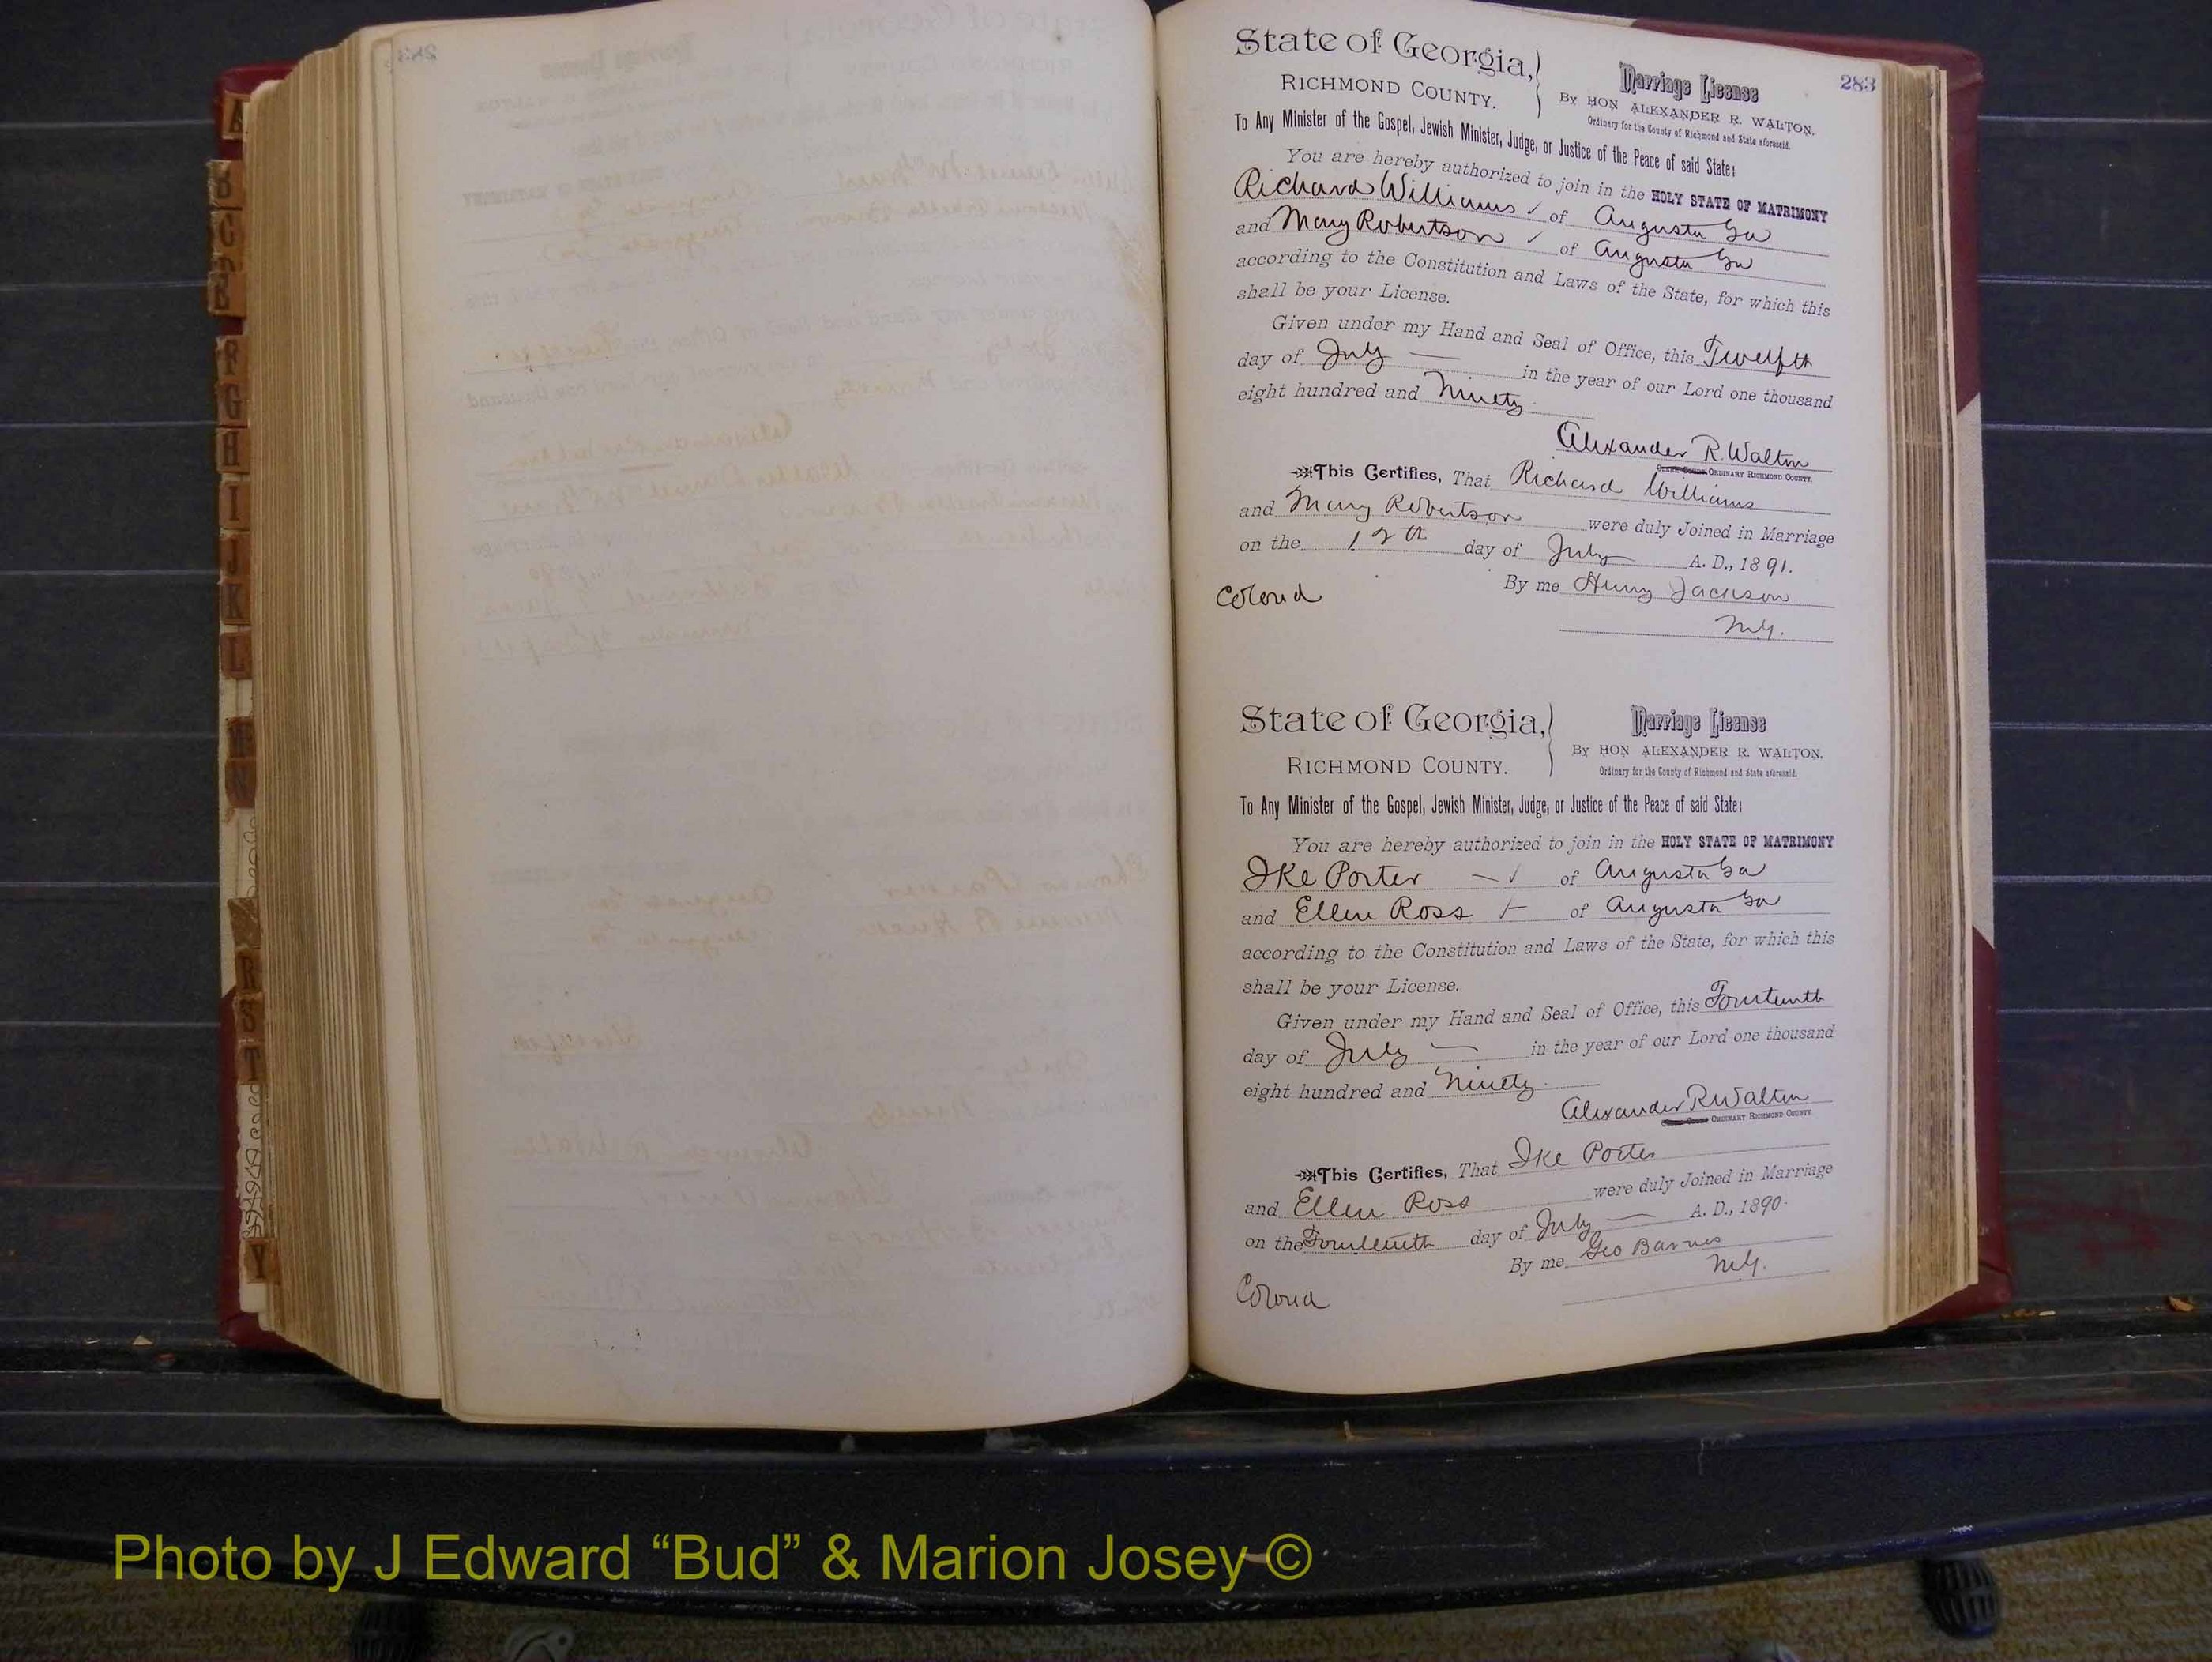 283
State of Georgia,
RICHMOND COUNTY.
Marriage License
By HON ALEXANDER R. WALTON,
Ordinary for the County of Richmond and State aforesaid.
To Any Minister of the Gospel, Jewish Minister, Judge, or Justice of the Peace of said State:
You are hereby authorized to join in the HOLY STATE OF MATRIMONY
Richard Williams ✓ of Augusta Ga
and Mary Robertson ✓ of Augusta Ga
according to the Constitution and Laws of the State, for which this
shall be your License.
Given under my Hand and Seal of Office, this Twelfth
day of July — in the year of our Lord one thousand
eight hundred and Ninety
Alexander R. Walton
ORDINARY RICHMOND COUNTY.
This Certifies, That Richard Williams
and Mary Robertson were duly Joined in Marriage
on the 12th day of July A. D., 1891.
By me Henry Jackson
Colored M.G.
State of Georgia,
RICHMOND COUNTY.
Marriage License
By HON ALEXANDER R. WALTON,
Ordinary for the County of Richmond and State aforesaid.
To Any Minister of the Gospel, Jewish Minister, Judge, or Justice of the Peace of said State:
You are hereby authorized to join in the HOLY STATE OF MATRIMONY
Ike Porter — ✓ of Augusta Ga
and Ellen Ross of Augusta Ga
according to the Constitution and Laws of the State, for which this
shall be your License.
Given under my Hand and Seal of Office, this Fourteenth
day of July — in the year of our Lord one thousand
eight hundred and Ninety
Alexander R Walton
ORDINARY RICHMOND COUNTY.
This Certifies, That Ike Porter
and Ellen Ross were duly Joined in Marriage
on the Fourteenth day of July — A. D., 1890.
By me Geo Barnes
M.G.
Colored
A
B
C
E
F
G
H
I
J
K
L
M
N
R
S
T
Y
Photo by J Edward “Bud” & Marion Josey ©